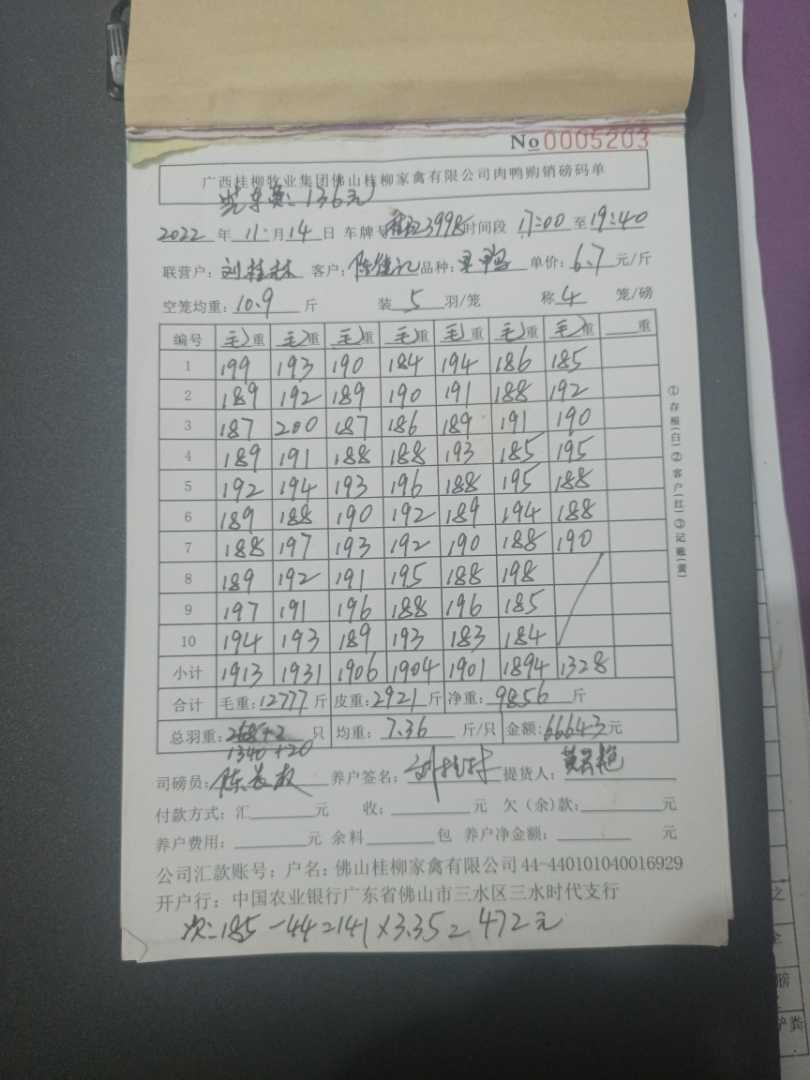 No 0005203
广西桂柳牧业集团佛山桂柳家禽有限公司肉鸭购销磅码单
136元
2022 年 11 月 14 日 车牌号 3998 时间段 17:00 至 19:40
联营户: 刘桂林 客户: 陈 记 品种: 鸭 单价: 6.7 元/斤
空笼均重: 10.9 斤 装 5 羽/笼 称 4 笼/磅
编号 毛重 毛重 毛重 毛重 毛重 毛重 毛重 重
1 199 193 190 184 194 186 185
2 189 192 189 190 191 188 192
3 187 200 187 186 189 191 190
4 189 191 188 188 193 185 195
5 192 194 193 196 188 195 188
6 189 188 190 192 189 194 188
7 188 197 193 192 190 188 190
8 189 192 191 195 188 198
9 197 191 196 188 196 185
10 194 193 189 193 183 184
小计 1913 1931 1906 1904 1901 1894 1328
合计 毛重: 12777 斤 皮重: 2921 斤 净重: 9856 斤
总羽重: 268+2 只 均重: 7.36 斤/只 金额: 66643 元
1340+20
司磅员: 陈 养户签名: 刘桂林 提货人: 黄 艳
付款方式: 汇 元 收: 元 欠(余)款: 元
养户费用: 元 余料 包 养户净金额: 元
公司汇款账号: 户名: 佛山桂柳家禽有限公司 44-440101040016929
开户行: 中国农业银行广东省佛山市三水区三水时代支行
次: 185-44=141×3.35=472元
①存根(白)②客户(红)③记账(黄)